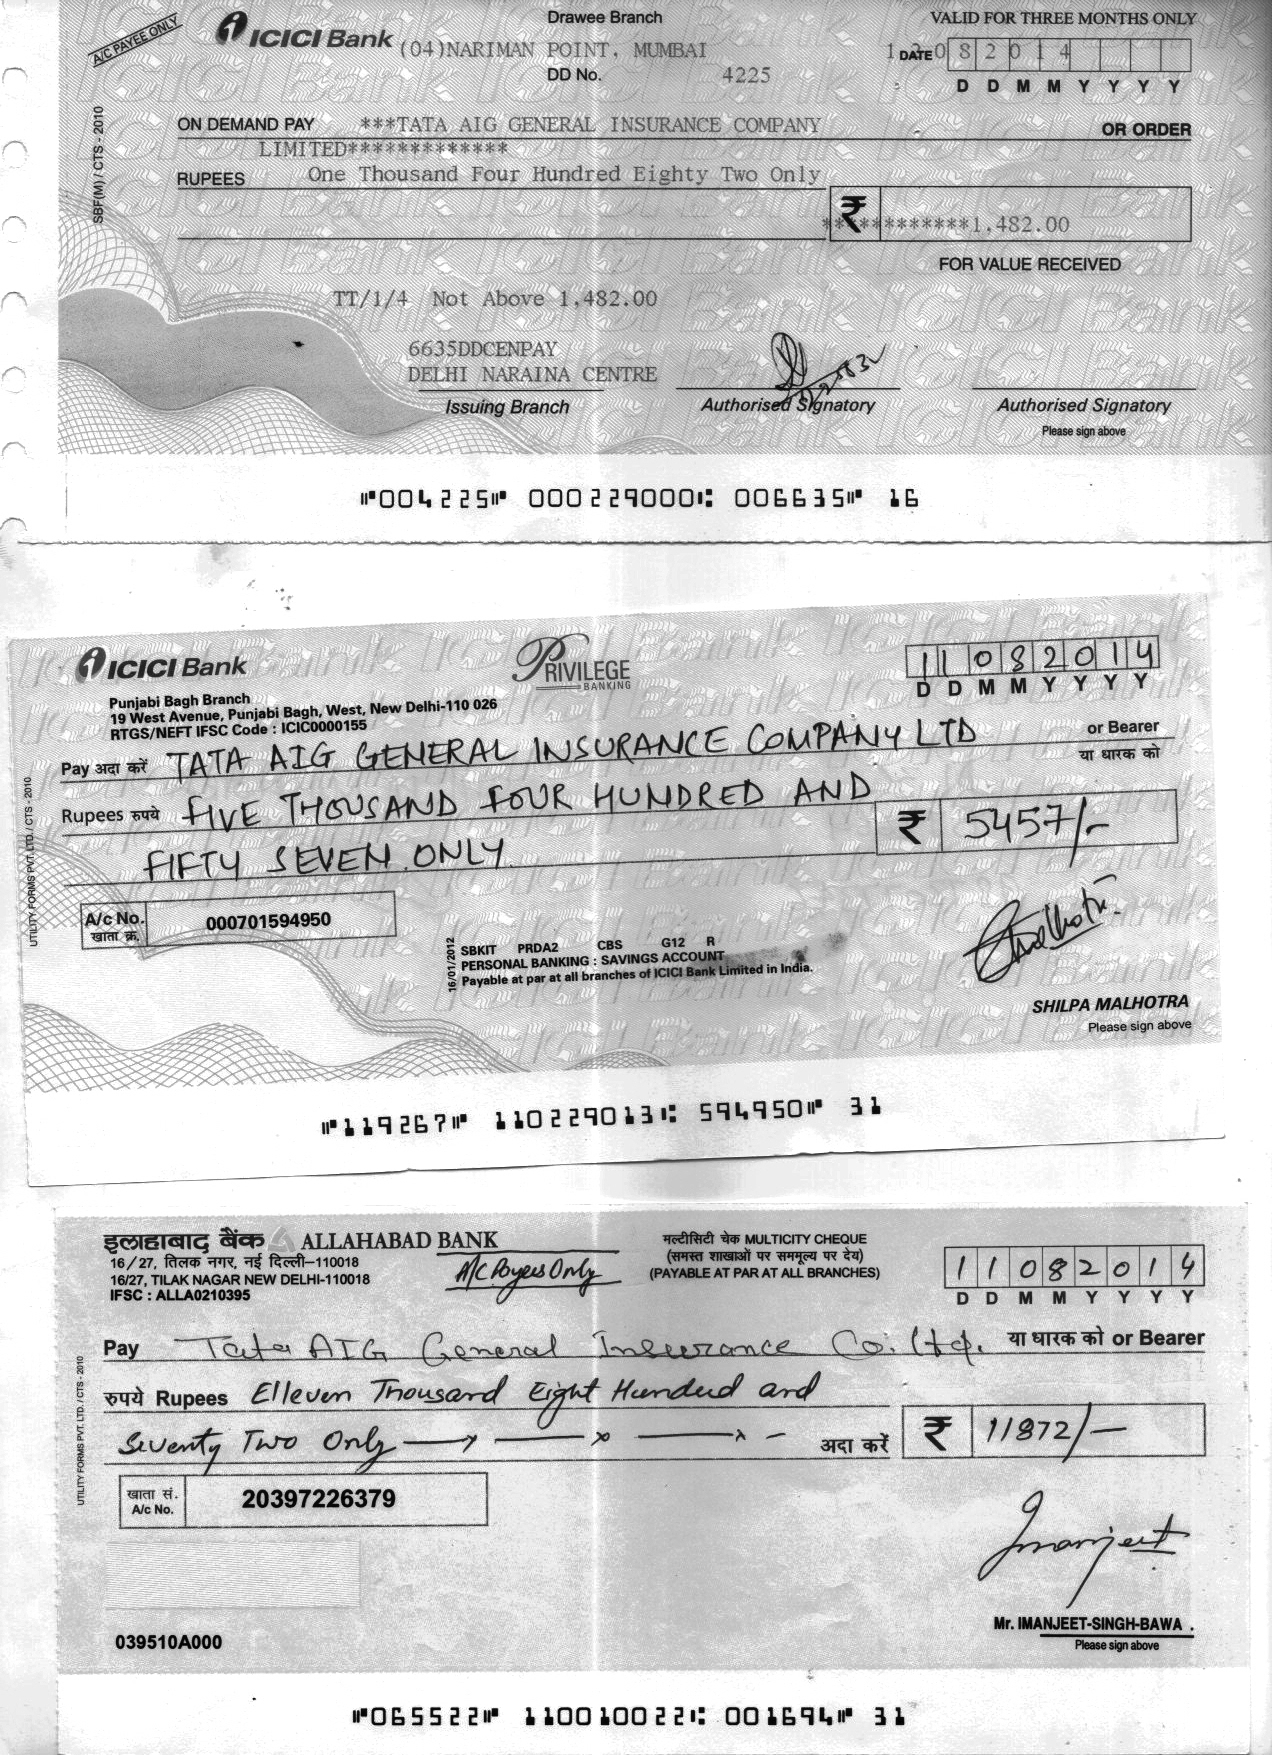 A/C PAYEE ONLY
ICICI Bank
Drawee Branch
VALID FOR THREE MONTHS ONLY
(04)NARIMAN POINT, MUMBAI
DATE 12082014
DD No. 4225
D D M M Y Y Y Y
SBF(M) / CTS - 2010
ON DEMAND PAY ***TATA AIG GENERAL INSURANCE COMPANY
OR ORDER
LIMITED*************
RUPEES One Thousand Four Hundred Eighty Two Only
₹ ************1,482.00
FOR VALUE RECEIVED
TT/1/4 Not Above 1,482.00
6635DDCENPAY
DELHI NARAINA CENTRE
Issuing Branch
Authorised Signatory
Authorised Signatory
Please sign above
⑈004225⑈ 000229000⑆ 006635⑈ 16
ICICI Bank
PRIVILEGE
BANKING
11082014
D D M M Y Y Y Y
Punjabi Bagh Branch
19 West Avenue, Punjabi Bagh, West, New Delhi-110 026
RTGS/NEFT IFSC Code : ICIC0000155
Pay अदा करें TATA AIG GENERAL INSURANCE COMPANY LTD
or Bearer
या धारक को
Rupees रुपये FIVE THOUSAND FOUR HUNDRED AND
FIFTY SEVEN ONLY.
₹ 5457/-
UTILITY FORMS PVT. LTD. / CTS - 2010
A/c No.
खाता क्र.
000701594950
16/01/2012
SBKIT PRDA2 CBS G12 R
PERSONAL BANKING : SAVINGS ACCOUNT
Payable at par at all branches of ICICI Bank Limited in India.
SHILPA MALHOTRA
Please sign above
⑈119267⑈ 110229013⑆ 594950⑈ 31
इलाहाबाद बैंक ALLAHABAD BANK
16/27, तिलक नगर, नई दिल्ली-110018
16/27, TILAK NAGAR NEW DELHI-110018
IFSC : ALLA0210395
A/C Payees Only
मल्टीसिटी चेक MULTICITY CHEQUE
(समस्त शाखाओं पर सममूल्य पर देय)
(PAYABLE AT PAR AT ALL BRANCHES)
11082014
D D M M Y Y Y Y
Pay Tata AIG General Insurance Co. Ltd. या धारक को or Bearer
रुपये Rupees Elleven Thousand Eight Hundred and
Seventy Two Only
अदा करें ₹ 11872/-
UTILITY FORMS PVT. LTD. / CTS - 2010
खाता सं.
A/c No.
20397226379
Imanjeet
039510A000
Mr. IMANJEET-SINGH-BAWA .
Please sign above
⑈065522⑈ 110010022⑆ 001694⑈ 31